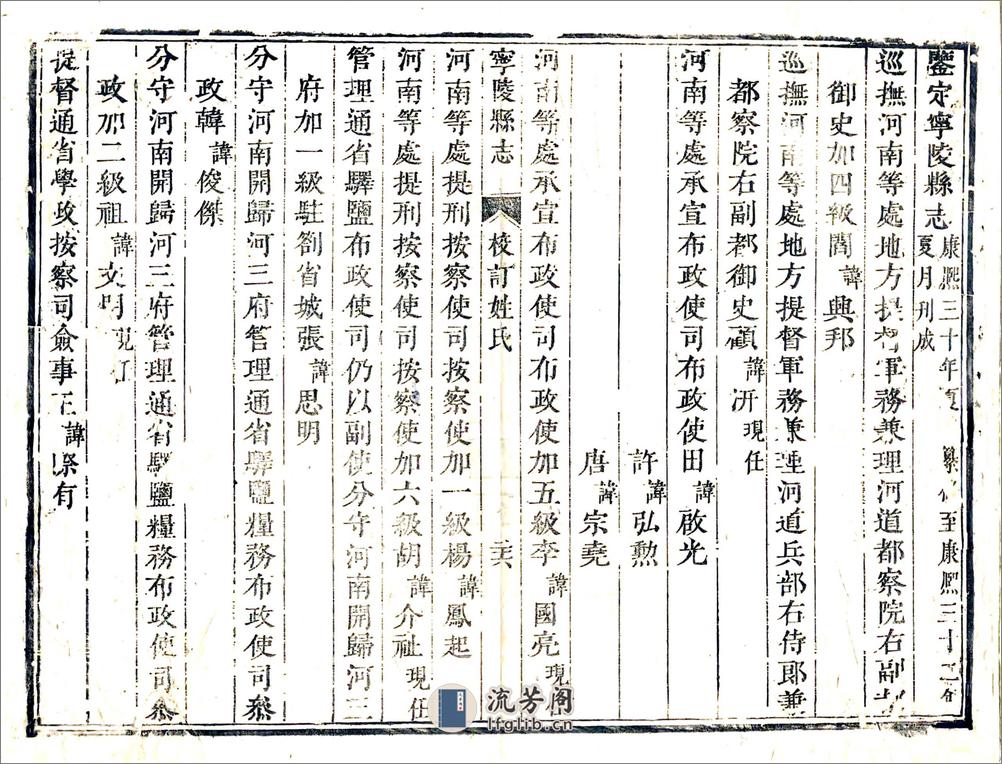 鑒定寧陵縣志康熙三十年夏纂修至康熙三十二年夏月刊成
巡撫河南等處地方提督軍務兼理河道都察院右副都
御史加四級閻諱興邦
巡撫河南等處地方提督軍務兼理河道兵部右侍郎兼
都察院右副都御史顧諱汧現任
河南等處承宣布政使司布政使田諱啟光
許諱弘勲
唐諱宗堯
河南等處承宣布政使司布政使加五級李諱國亮現任
寧陵縣志 校訂姓氏
河南等處提刑按察使司按察使加一級楊諱鳳起
河南等處提刑按察使司按察使加六級胡諱介祉現任
管理通省驛鹽布政使司仍以副使分守河南開歸河三
府加一級駐劄省城張諱思明
分守河南開歸河三府管理通省驛鹽糧務布政使司叅
政韓諱俊傑
分守河南開歸河三府管理通省驛鹽糧務布政使司叅
政加二級祖諱文明現任
提督通省學政按察司僉事王諱有
流芳阁
lfglib.cn